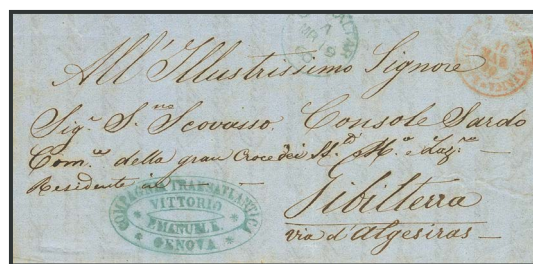 All' Illustrissimo Signore
Sig.r S.re Scovasso. Console Sardo
Com.re della gran Croce dei SS.ti M.o e Laz.ro —
Residente in —
Gibilterra
via d'Algesiras —
COMPAGNIA TRANSATLANTICA
VITTORIO
EMANUELE
* GENOVA *